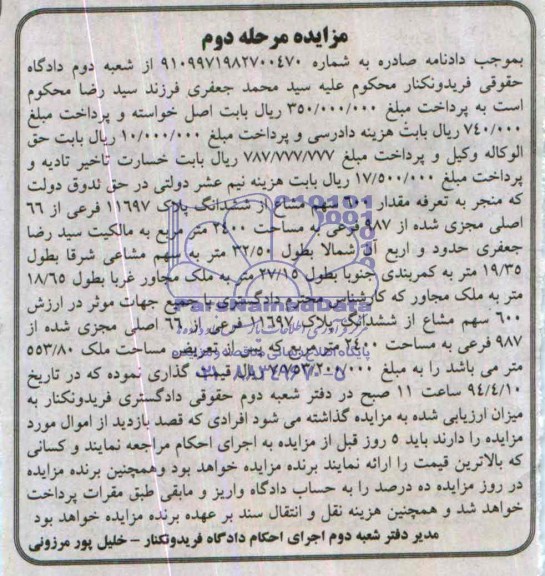 مزایده مرحله دوم
بموجب دادنامه صادره به شماره ۹۱۰۹۹۷۱۹۸۲۷۰۰۴۷۰ از شعبه دوم دادگاه
حقوقی فریدونکنار محکوم علیه سید محمد جعفری فرزند سید رضا محکوم
است به پرداخت مبلغ ۳۵۰/۰۰۰/۰۰۰ ریال بابت اصل خواسته و پرداخت مبلغ
۷۴۰/۰۰۰ ریال بابت هزینه دادرسی و پرداخت مبلغ ۱۰/۰۰۰/۰۰۰ ریال بابت حق
الوکاله وکیل و پرداخت مبلغ ۷۸۷/۷۷۷/۷۷۷ ریال بابت خسارت تاخیر تادیه و
پرداخت مبلغ ۱۷/۵۰۰/۰۰۰ ریال بابت هزینه نیم عشر دولتی در حق ندوق دولت
که منجر به تعرفه مقدار ۶۰۰ سهم مشاع از ششدانگ پلاک ۱۱۶۹۷ فرعی از ۶۶
اصلی مجزی شده از ۹۸۷ فرعی به مساحت ۲۴۰۰ متر مربع به مالکیت سید رضا
جعفری حدود و اربع از شمالا بطول ۳۲/۵۰ متر به سهم مشاعی شرقا بطول
۱۹/۳۵ متر به کمربندی جنوبا بطول ۲۷/۱۵ متر به ملک مجاور غربا بطول ۱۸/۶۵
متر به ملک مجاور که کارشناس محترم دادگستری با جمیع جهات موثر در ارزش
۶۰۰ سهم مشاع از ششدانگ پلاک ۱۱۶۹۷ فرعی از ۶۶ اصلی مجزی شده از
۹۸۷ فرعی به مساحت ۲۴۰۰ متر مربع که پس از تعریض مساحت ملک ۵۵۳/۸۰
متر می باشد را به مبلغ ریال قیمت گذاری نموده که در تاریخ
۹۴/۴/۱۰ ساعت ۱۱ صبح در دفتر شعبه دوم حقوقی دادگستری فریدونکنار به
میزان ارزیابی شده به مزایده گذاشته می شود افرادی که قصد بازدید از اموال مورد
مزایده را دارند باید ۵ روز قبل از مزایده به اجرای احکام مراجعه نمایند و کسانی
که بالاترین قیمت را ارائه نمایند برنده مزایده خواهد بود وهمچنین برنده مزایده
در روز مزایده ده درصد را به حساب دادگاه واریز و مابقی طبق مقرات پرداخت
خواهد شد و همچنین هزینه نقل و انتقال سند بر عهده برنده مزایده خواهد بود
مدیر دفتر شعبه دوم اجرای احکام دادگاه فریدونکنار – خلیل پور مرزونی
ParsNamadData
پایگاه اطلاع رسانی مناقصه و مزایده
۰۲۱-۸۸۳۴۹۶۷۰-۵